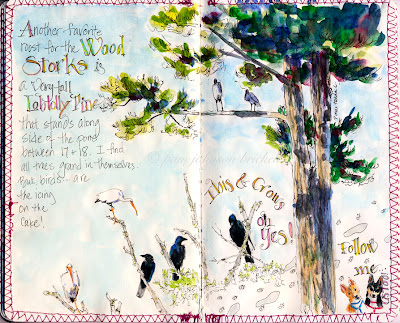 Another favorite
roost for the Wood
Storks is
a very tall
Loblolly Pine
that stands along
side of the pond
between 17 + 18. I find
all trees grand in themselves
birds are
the icing
on the
Cake!
This & Crows
oh
Yes!
Follow
me